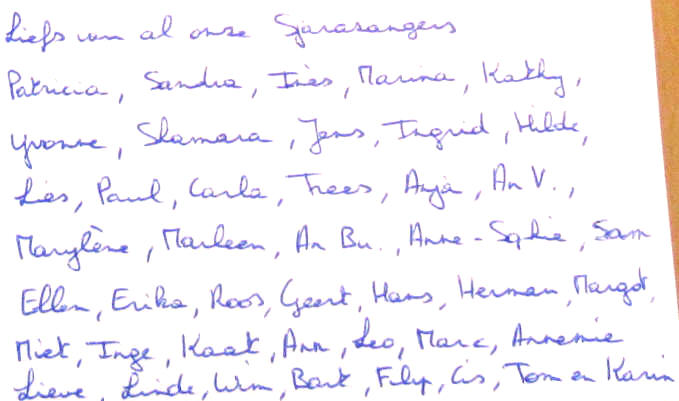 Liefs van al onze Sjarazangers
Patricia, Sandra, Inès, Marina, Kathy,
Yvonne, Shamara, Jens, Ingrid, Hilde,
Lies, Paul, Carla, Trees, Anja, An V.,
Marylène, Marleen, An Bu., Anne-Sophie, Sam
Ellen, Erika, Roos, Geert, Hans, Herman, Margot,
Miet, Inge, Kaat, Ann, Leo, Marc, Annemie
Lieve, Linde, Wim, Bart, Filip, Cis, Tom en Karin